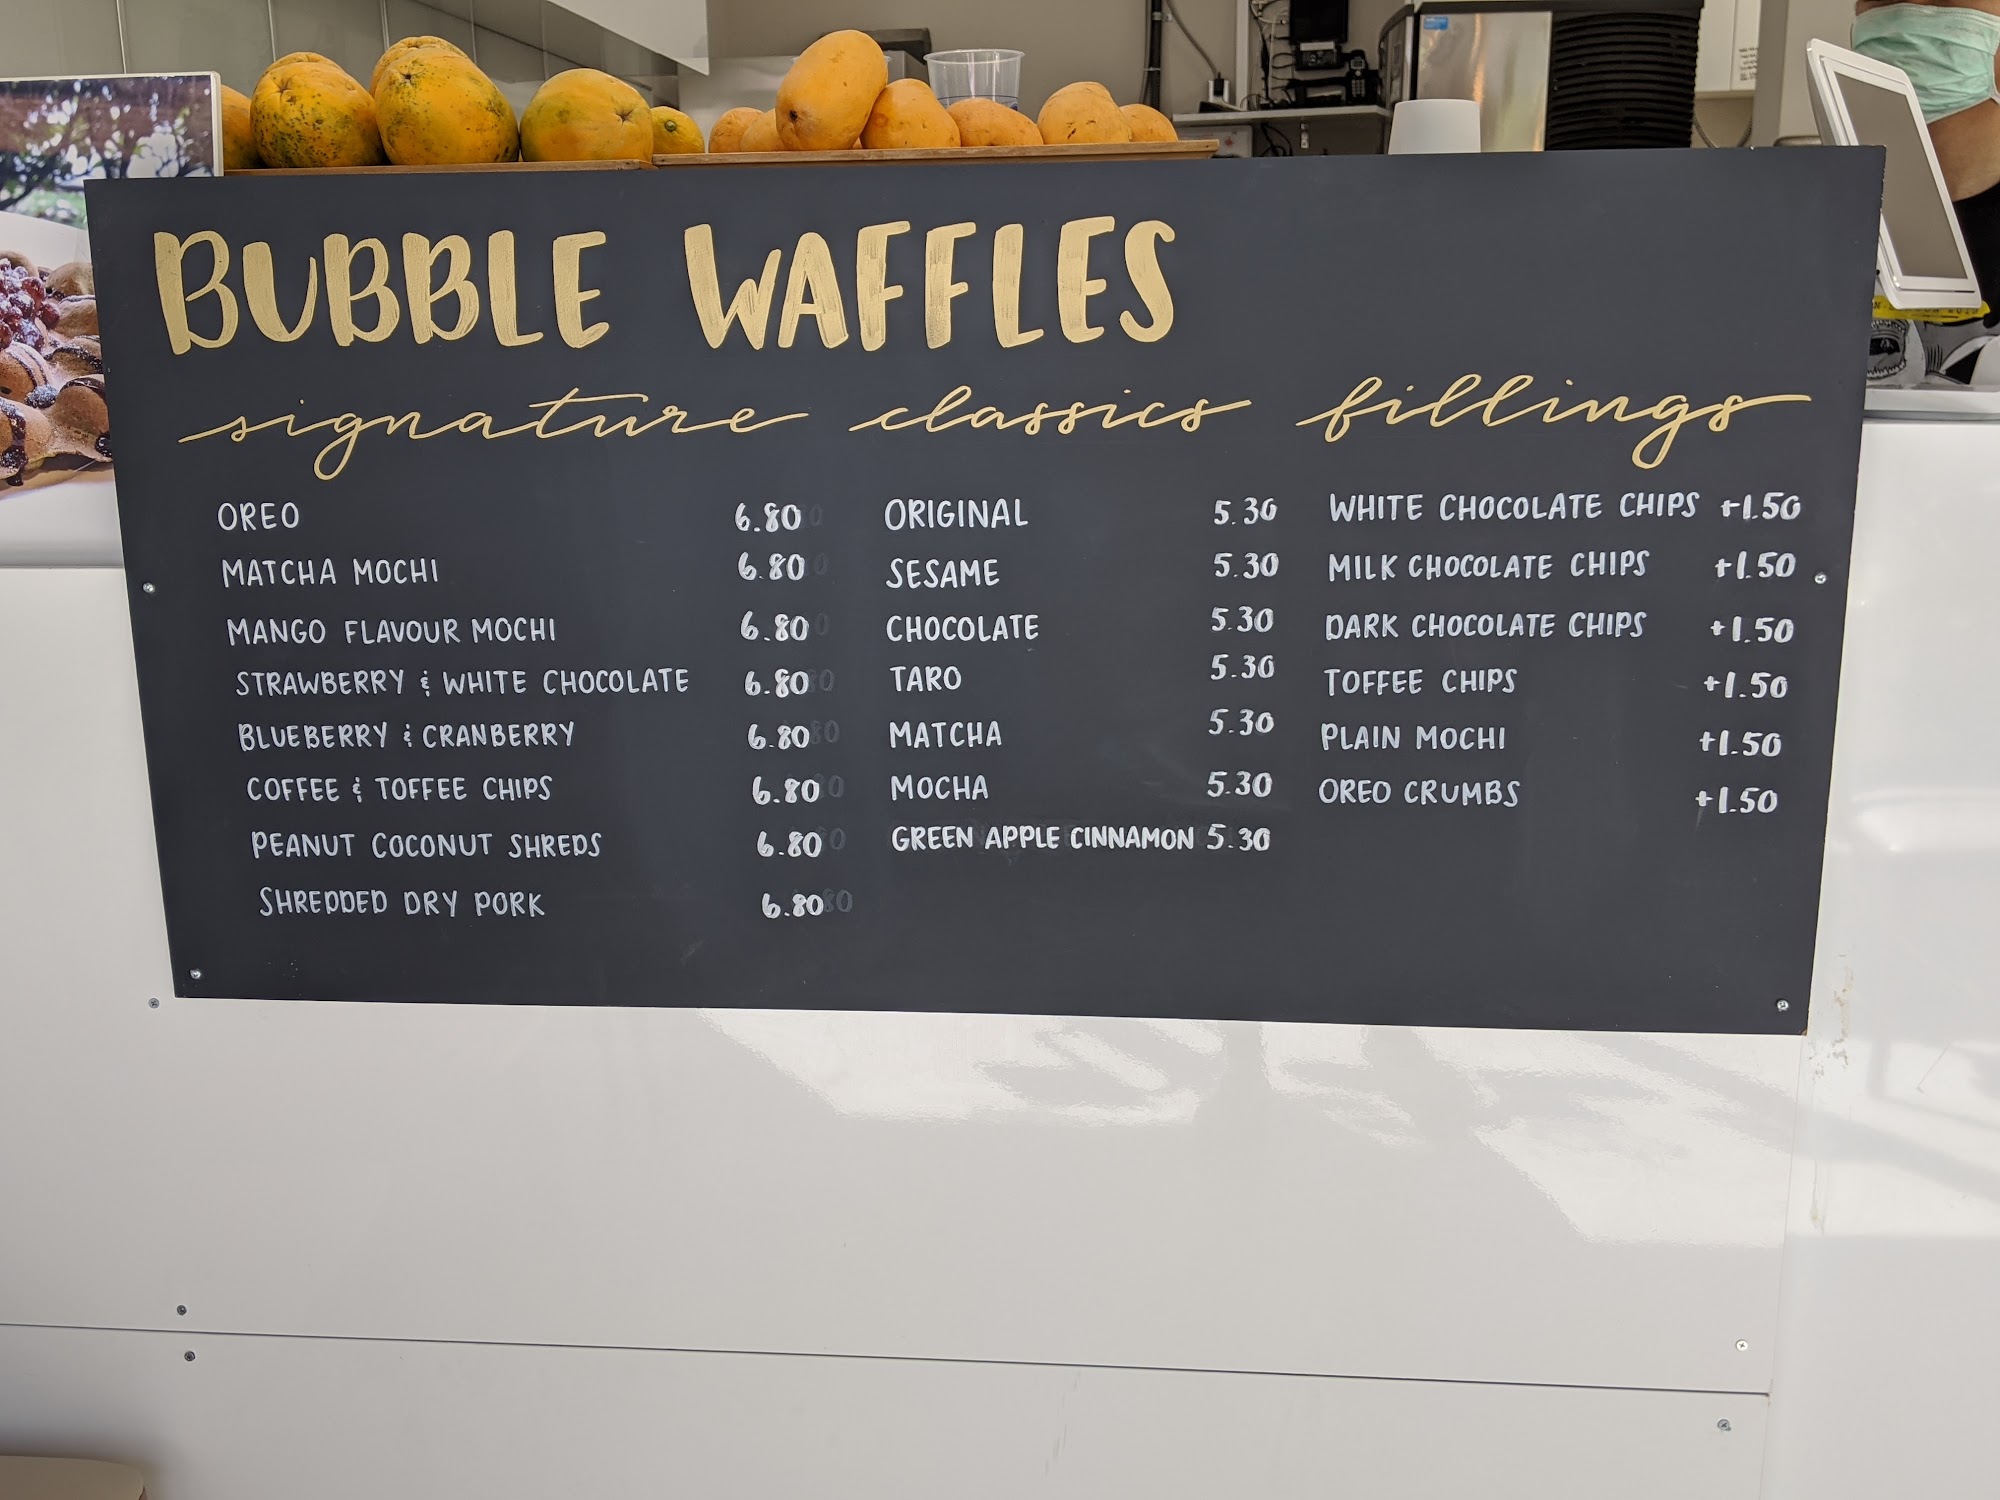 BUBBLE WAFFLES
signature
OREO 6.80
MATCHA MOCHI 6.80
MANGO FLAVOUR MOCHI 6.80
STRAWBERRY & WHITE CHOCOLATE 6.80
BLUEBERRY & CRANBERRY 6.80
COFFEE & TOFFEE CHIPS 6.80
PEANUT COCONUT SHREDS 6.80
SHREDDED DRY PORK 6.80
classics
ORIGINAL 5.30
SESAME 5.30
CHOCOLATE 5.30
TARO 5.30
MATCHA 5.30
MOCHA 5.30
GREEN APPLE CINNAMON 5.30
fillings
WHITE CHOCOLATE CHIPS +1.50
MILK CHOCOLATE CHIPS +1.50
DARK CHOCOLATE CHIPS +1.50
TOFFEE CHIPS +1.50
PLAIN MOCHI +1.50
OREO CRUMBS +1.50